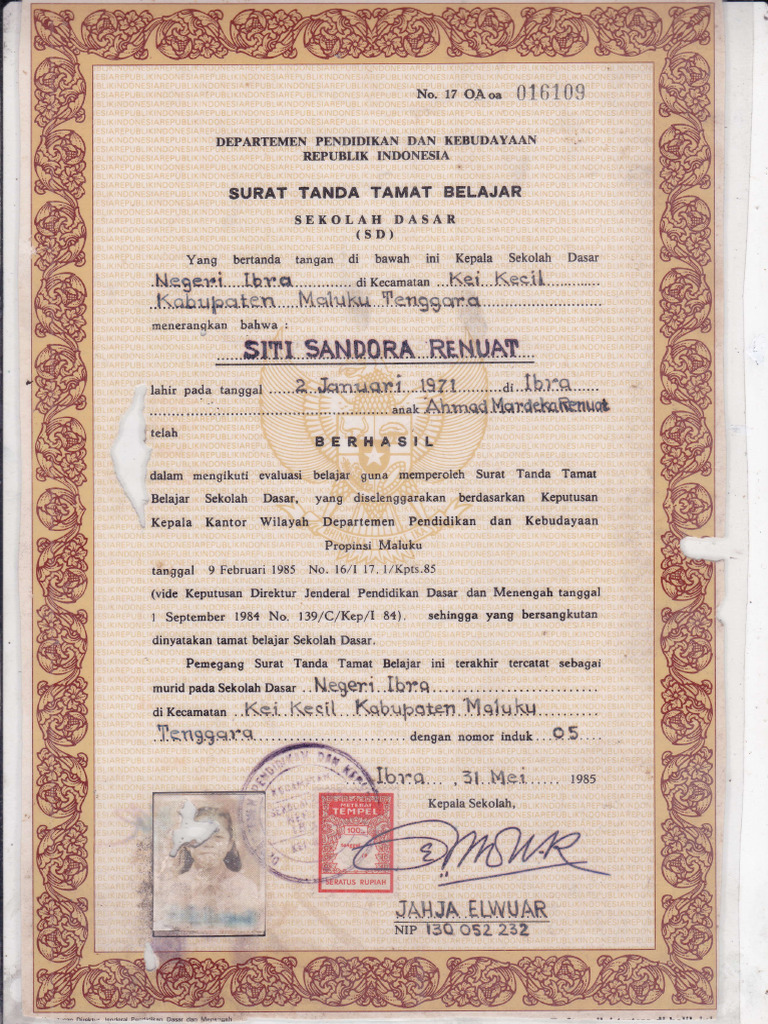 No. 17 OA oa 016109
DEPARTEMEN PENDIDIKAN DAN KEBUDAYAAN
REPUBLIK INDONESIA
SURAT TANDA TAMAT BELAJAR
SEKOLAH DASAR
(SD)
Yang bertanda tangan di bawah ini Kepala Sekolah Dasar
Negeri Ibra di Kecamatan Kei Kecil
Kabupaten Maluku Tenggara
menerangkan bahwa :
SITI SANDORA RENUAT
lahir pada tanggal 2 Januari 1971 di Ibra
anak Ahmad Mardeka Renuat
telah
BERHASIL
dalam mengikuti evaluasi belajar guna memperoleh Surat Tanda Tamat
Belajar Sekolah Dasar, yang diselenggarakan berdasarkan Keputusan
Kepala Kantor Wilayah Departemen Pendidikan dan Kebudayaan
Propinsi Maluku
tanggal 9 Februari 1985 No. 16/I 17. 1/Kpts.85
(vide Keputusan Direktur Jenderal Pendidikan Dasar dan Menengah tanggal
1 September 1984 No. 139/C/Kep/I 84). sehingga yang bersangkutan
dinyatakan tamat belajar Sekolah Dasar.
Pemegang Surat Tanda Tamat Belajar ini terakhir tercatat sebagai
murid pada Sekolah Dasar Negeri Ibra
di Kecamatan Kei Kecil Kabupaten Maluku
Tenggara dengan nomor induk 05
Ibra, 31 Mei 1985
Kepala Sekolah,
METERAI
TEMPEL
100
SERATUS RUPIAH
JAHJA ELWUAR
NIP 130 052 232